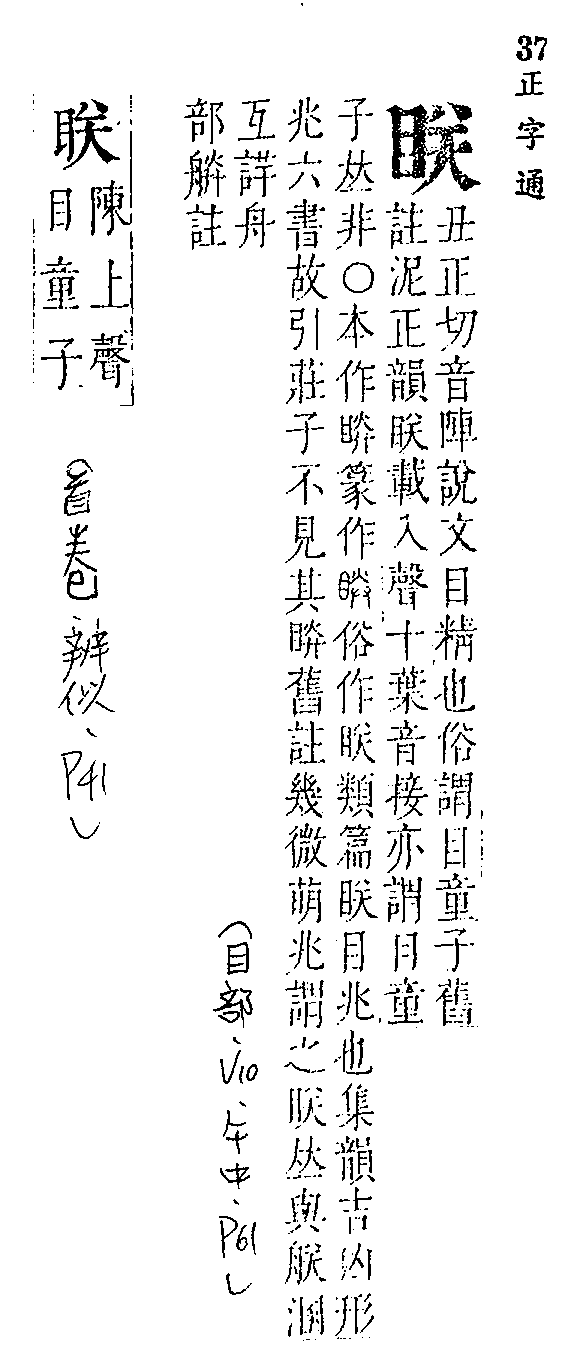 37正字通
眹 丑正切音陣說文目精也俗謂目童子舊
註泥正韻眹載入聲十葉音接亦謂目童
子丛非○本作䏖篆作䏖俗作眹類篇眹目兆也集韻吉凶形
兆六書故引莊子不見其䏖舊註幾微萌兆謂之眹丛與艅溷
互詳舟
部註
(目部、V10、午中、P61)
眹 陳上聲
目童子
(首卷、辨似、P41)